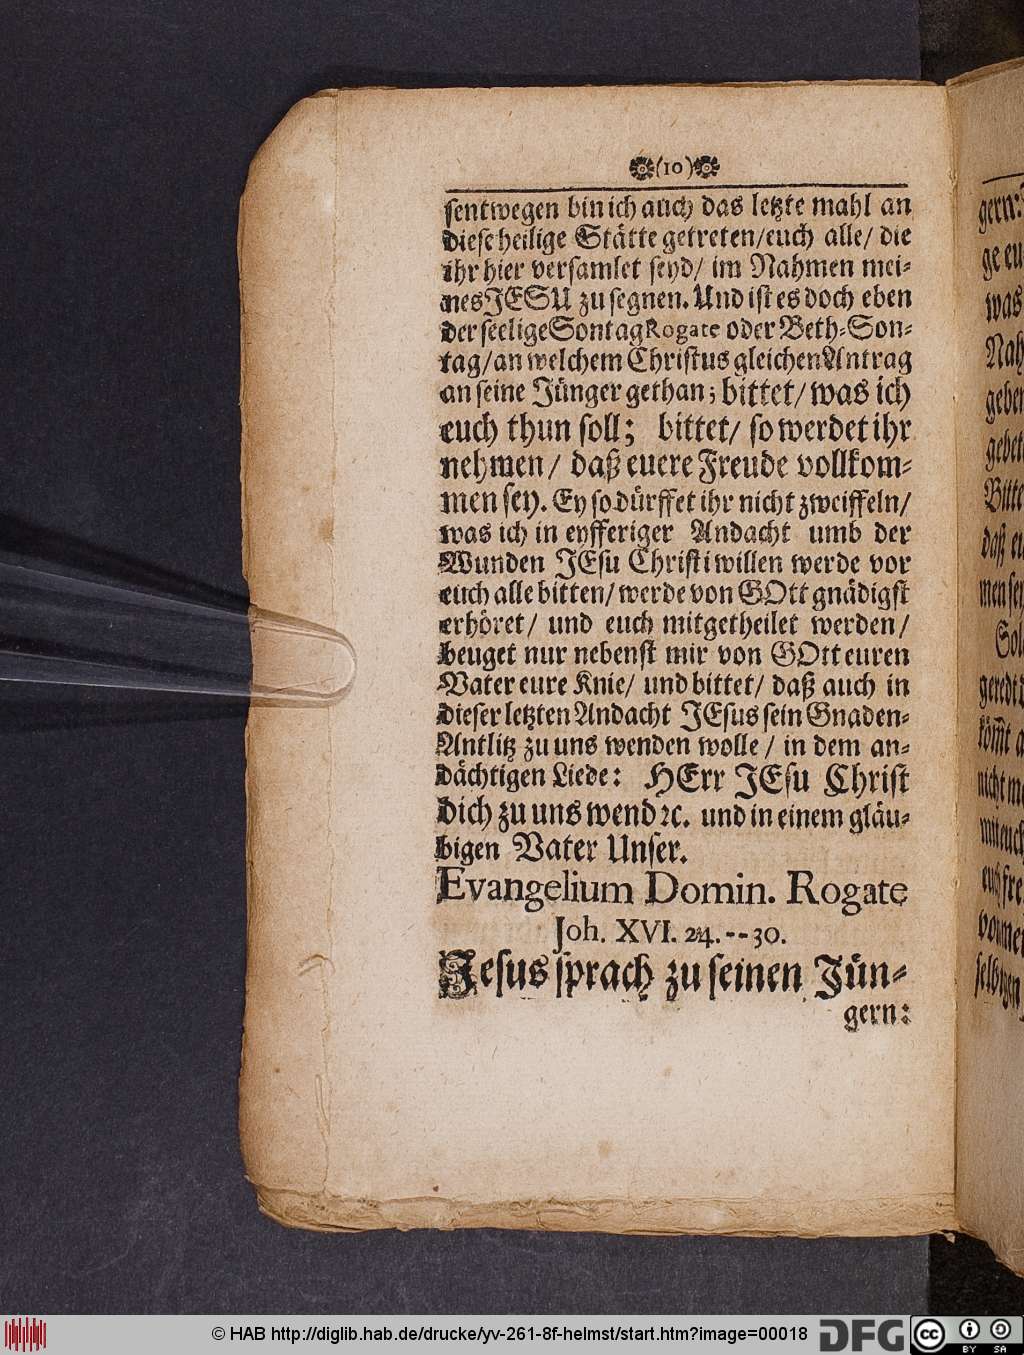 (10)
sentwegen bin ich auch das letzte mahl an
diese heilige Stätte getreten/ euch alle/ die
ihr hier versamlet seyd/ im Nahmen mei-
nes JESU zu segnen. Und ist es doch eben
der seelige Sontag Rogate oder Beth-Son-
tag/ an welchem Christus gleichen Antrag
an seine Jünger gethan; bittet/ was ich
euch thun soll; bittet/ so werdet ihr
nehmen/ daß euere Freude vollkom-
men sey. Ey so dürffet ihr nicht zweiffeln/
was ich in eyfferiger Andacht umb der
Wunden JEsu Christi willen werde vor
euch alle bitten/ werde von GOtt gnädigst
erhöret/ und euch mitgetheilet werden/
beuget nur nebenst mir von GOtt euren
Vater eure Knie/ und bittet/ daß auch in
dieser letzten Andacht JEsus sein Gnaden-
Antlitz zu uns wenden wolle/ in dem an-
dächtigen Liede: HErr JEsu Christ
dich zu uns wend ꝛc. und in einem gläu-
bigen Vater Unser.
Evangelium Domin. Rogate
Joh. XVI. 24.--30.
Jesus sprach zu seinen Jün-
gern:
gern:
ge eu
was
Nah
geben
gebet
Bitte
daß eu
men sey
Sol
geredt
kömt
nicht me
mit euch
euch fre
von mei
selbigen
© HAB http://diglib.hab.de/drucke/yv-261-8f-helmst/start.htm?image=00018
DFG
cc
BY
SA